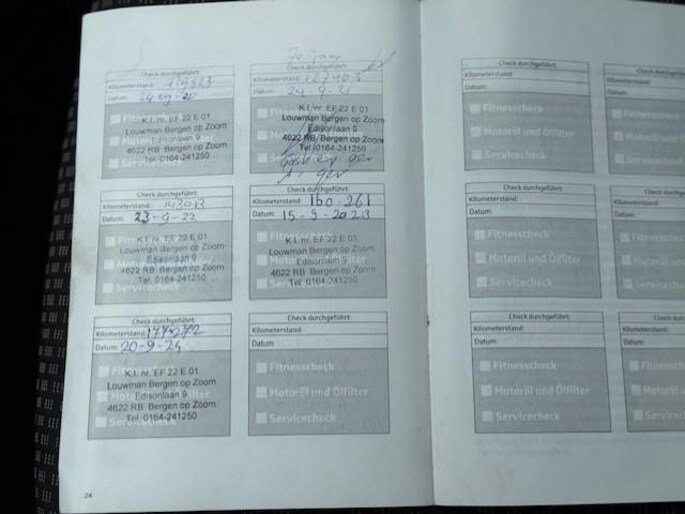 Check durchgeführt:
Kilometerstand:
Datum:
Fitnesscheck
Motoröl und Ölfilter
Servicecheck
K.I. nr. EF 22 E 01
Louwman Bergen op Zoom
Edisonlaan 9
4622 RB Bergen op Zoom
Tel. 0164-241250
Check durchgeführt:
Kilometerstand: 127403
Datum: 24-9-21
Fitnesscheck
Motoröl und Ölfilter
Servicecheck
K.I. nr. EF 22 E 01
Louwman Bergen op Zoom
Edisonlaan 9
4622 RB Bergen op Zoom
Tel. 0164-241250
Check durchgeführt:
Kilometerstand:
Datum: 23-9-22
Fitnesscheck
Motoröl und Ölfilter
Servicecheck
K.I. nr. EF 22 E 01
Louwman Bergen op Zoom
Edisonlaan 9
4622 RB Bergen op Zoom
Tel. 0164-241250
Check durchgeführt:
Kilometerstand: 160.261
Datum: 15-9-2023
Fitnesscheck
Motoröl und Ölfilter
Servicecheck
K.I. nr. EF 22 E 01
Louwman Bergen op Zoom
Edisonlaan 9
4622 RB Bergen op Zoom
Tel. 0164-241250
Check durchgeführt:
Kilometerstand:
Datum: 20-9-24
Fitnesscheck
Motoröl und Ölfilter
Servicecheck
K.I. nr. EF 22 E 01
Louwman Bergen op Zoom
Edisonlaan 9
4622 RB Bergen op Zoom
Tel. 0164-241250
Check durchgeführt:
Kilometerstand:
Datum:
Fitnesscheck
Motoröl und Ölfilter
Servicecheck
24
Check durchgeführt:
Kilometerstand:
Datum:
Fitnesscheck
Motoröl und Ölfilter
Servicecheck
Kilometerstand
Datum:
Check durchgeführt:
Kilometerstand:
Datum:
Fitnesscheck
Motoröl und Ölfilter
Servicecheck
Kilometerst
Datum:
Check durchgeführt:
Kilometerstand:
Datum:
Fitnesscheck
Motoröl und Ölfilter
Servicecheck
Kilometers
Datum: